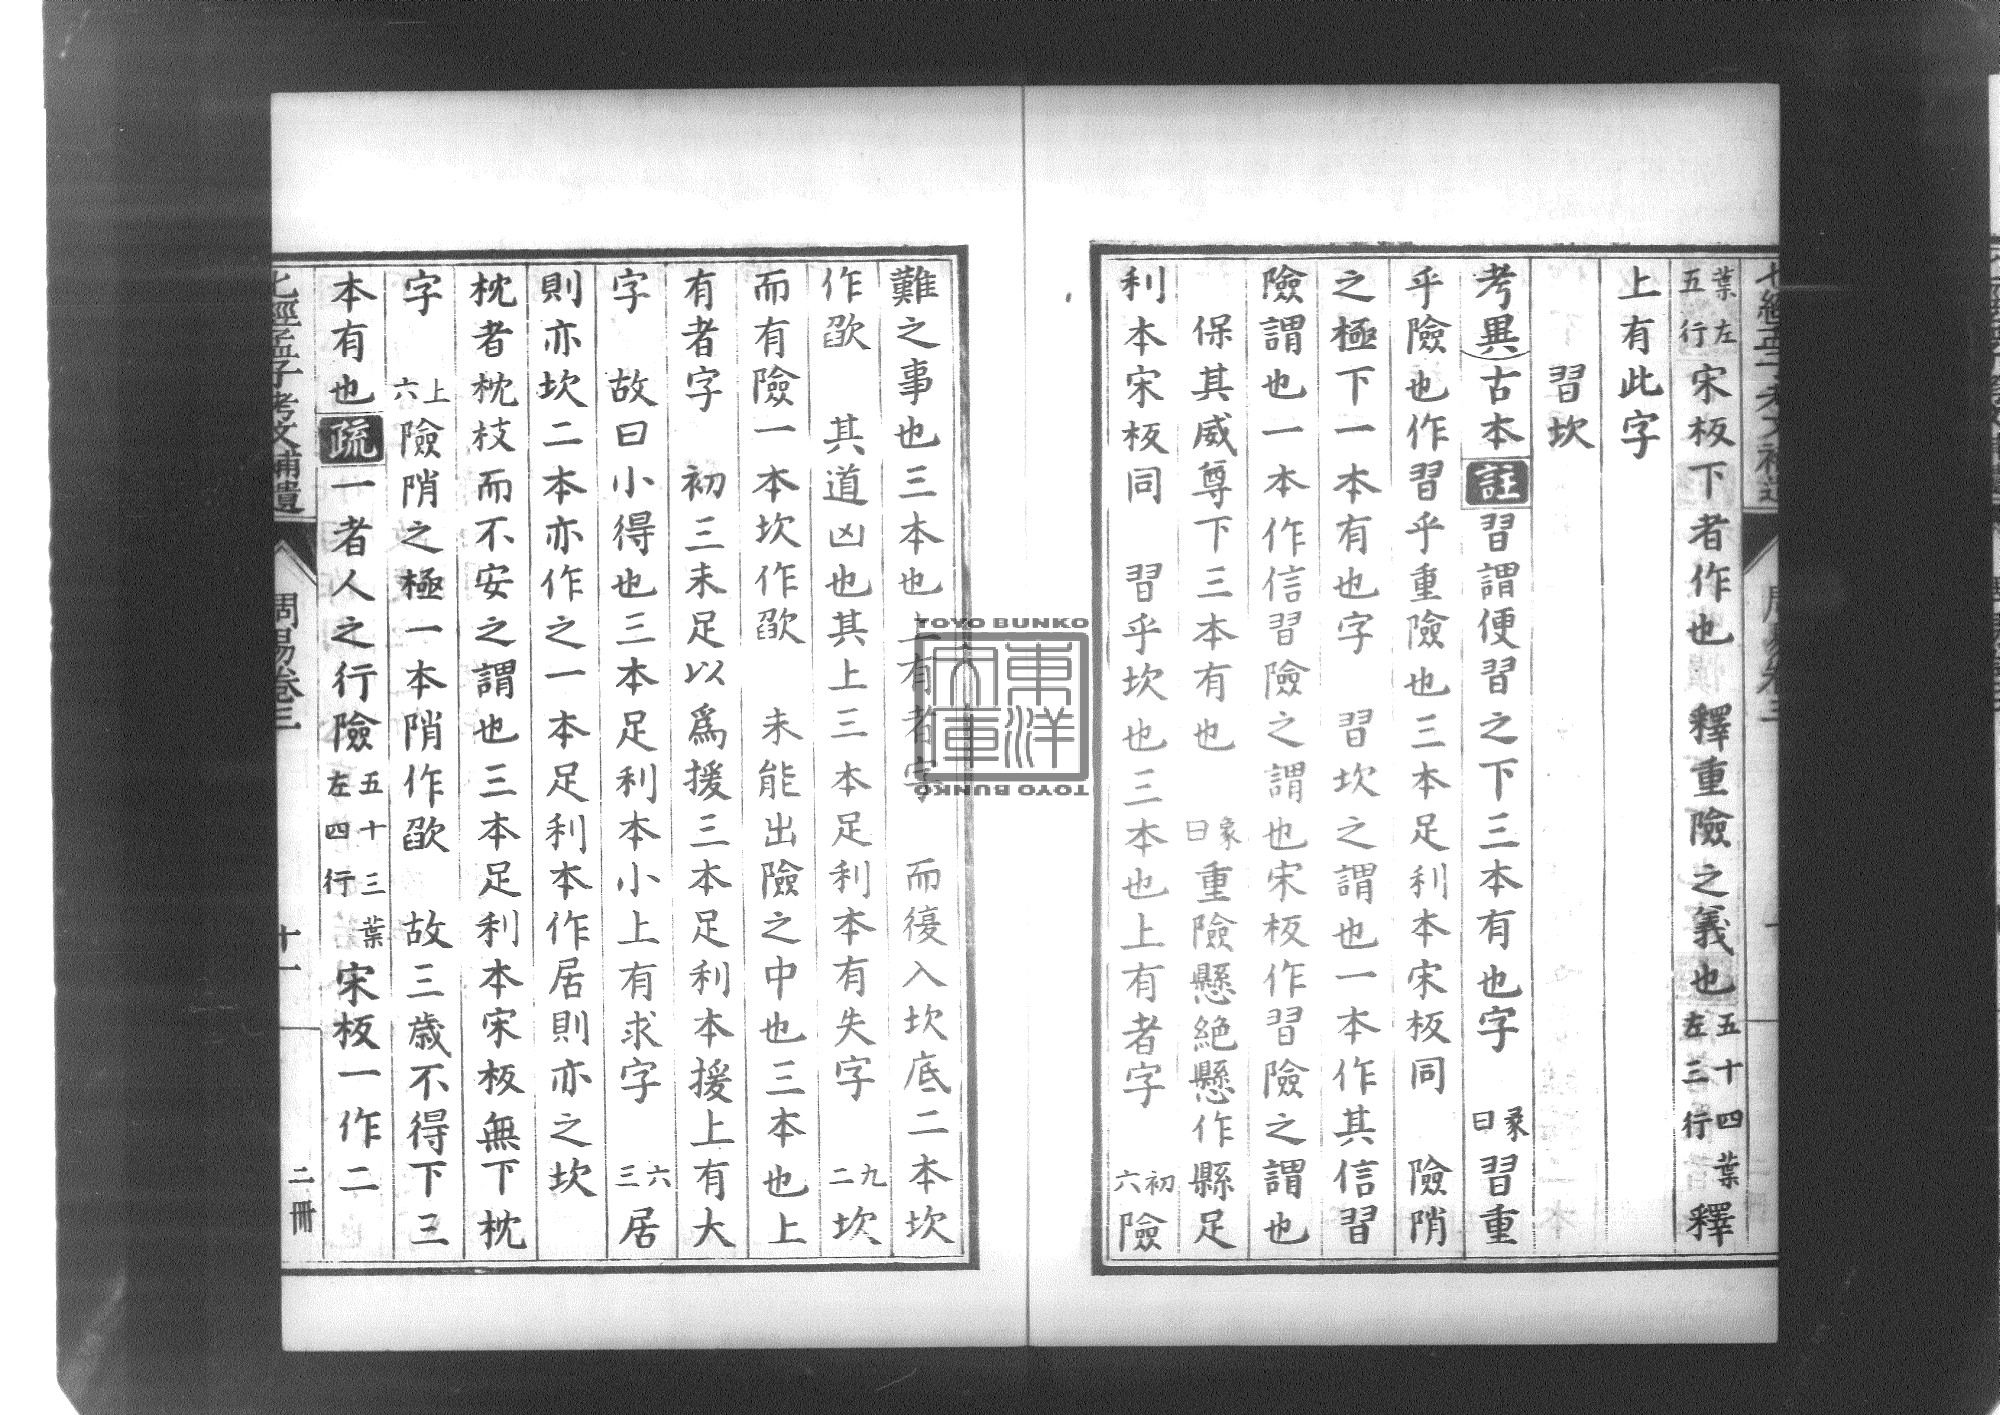 葉左五行宋板下者作也　釋重險之義也五十四葉左三行釋
上有此字
習坎
考異古本註習謂便習之下三本有也字　彖曰習重
乎險也作習乎重險也三本足利本宋板同　險陗
之極下一本有也字　習坎之謂也一本作其信習
險謂也一本作信習險之謂也宋板作習險之謂也
保其威尊下三本有也　彖曰重險懸絶懸作縣足
利本宋板同　習乎坎也三本也上有者字　初六險
難之事也三本也上有者字　而復入坎底二本坎
作欿　其道凶也其上三本足利本有失字　九二坎
而有險一本坎作欿　未能出險之中也三本也上
有者字　初三未足以爲援三本足利本援上有大
字　故曰小得也三本足利本小上有求字　六三居
則亦坎二本亦作之一本足利本作居則亦之坎
枕者枕枝而不安之謂也三本足利本宋板無下枕
字　上六險陗之極一本陗作欿　故三歲不得下三
本有也疏一者人之行險五十三葉左四行宋板一作二
七經孟子考文補遺　周易卷三　十一　二冊
東洋文庫
TOYO BUNKO
TOYO BUNKO